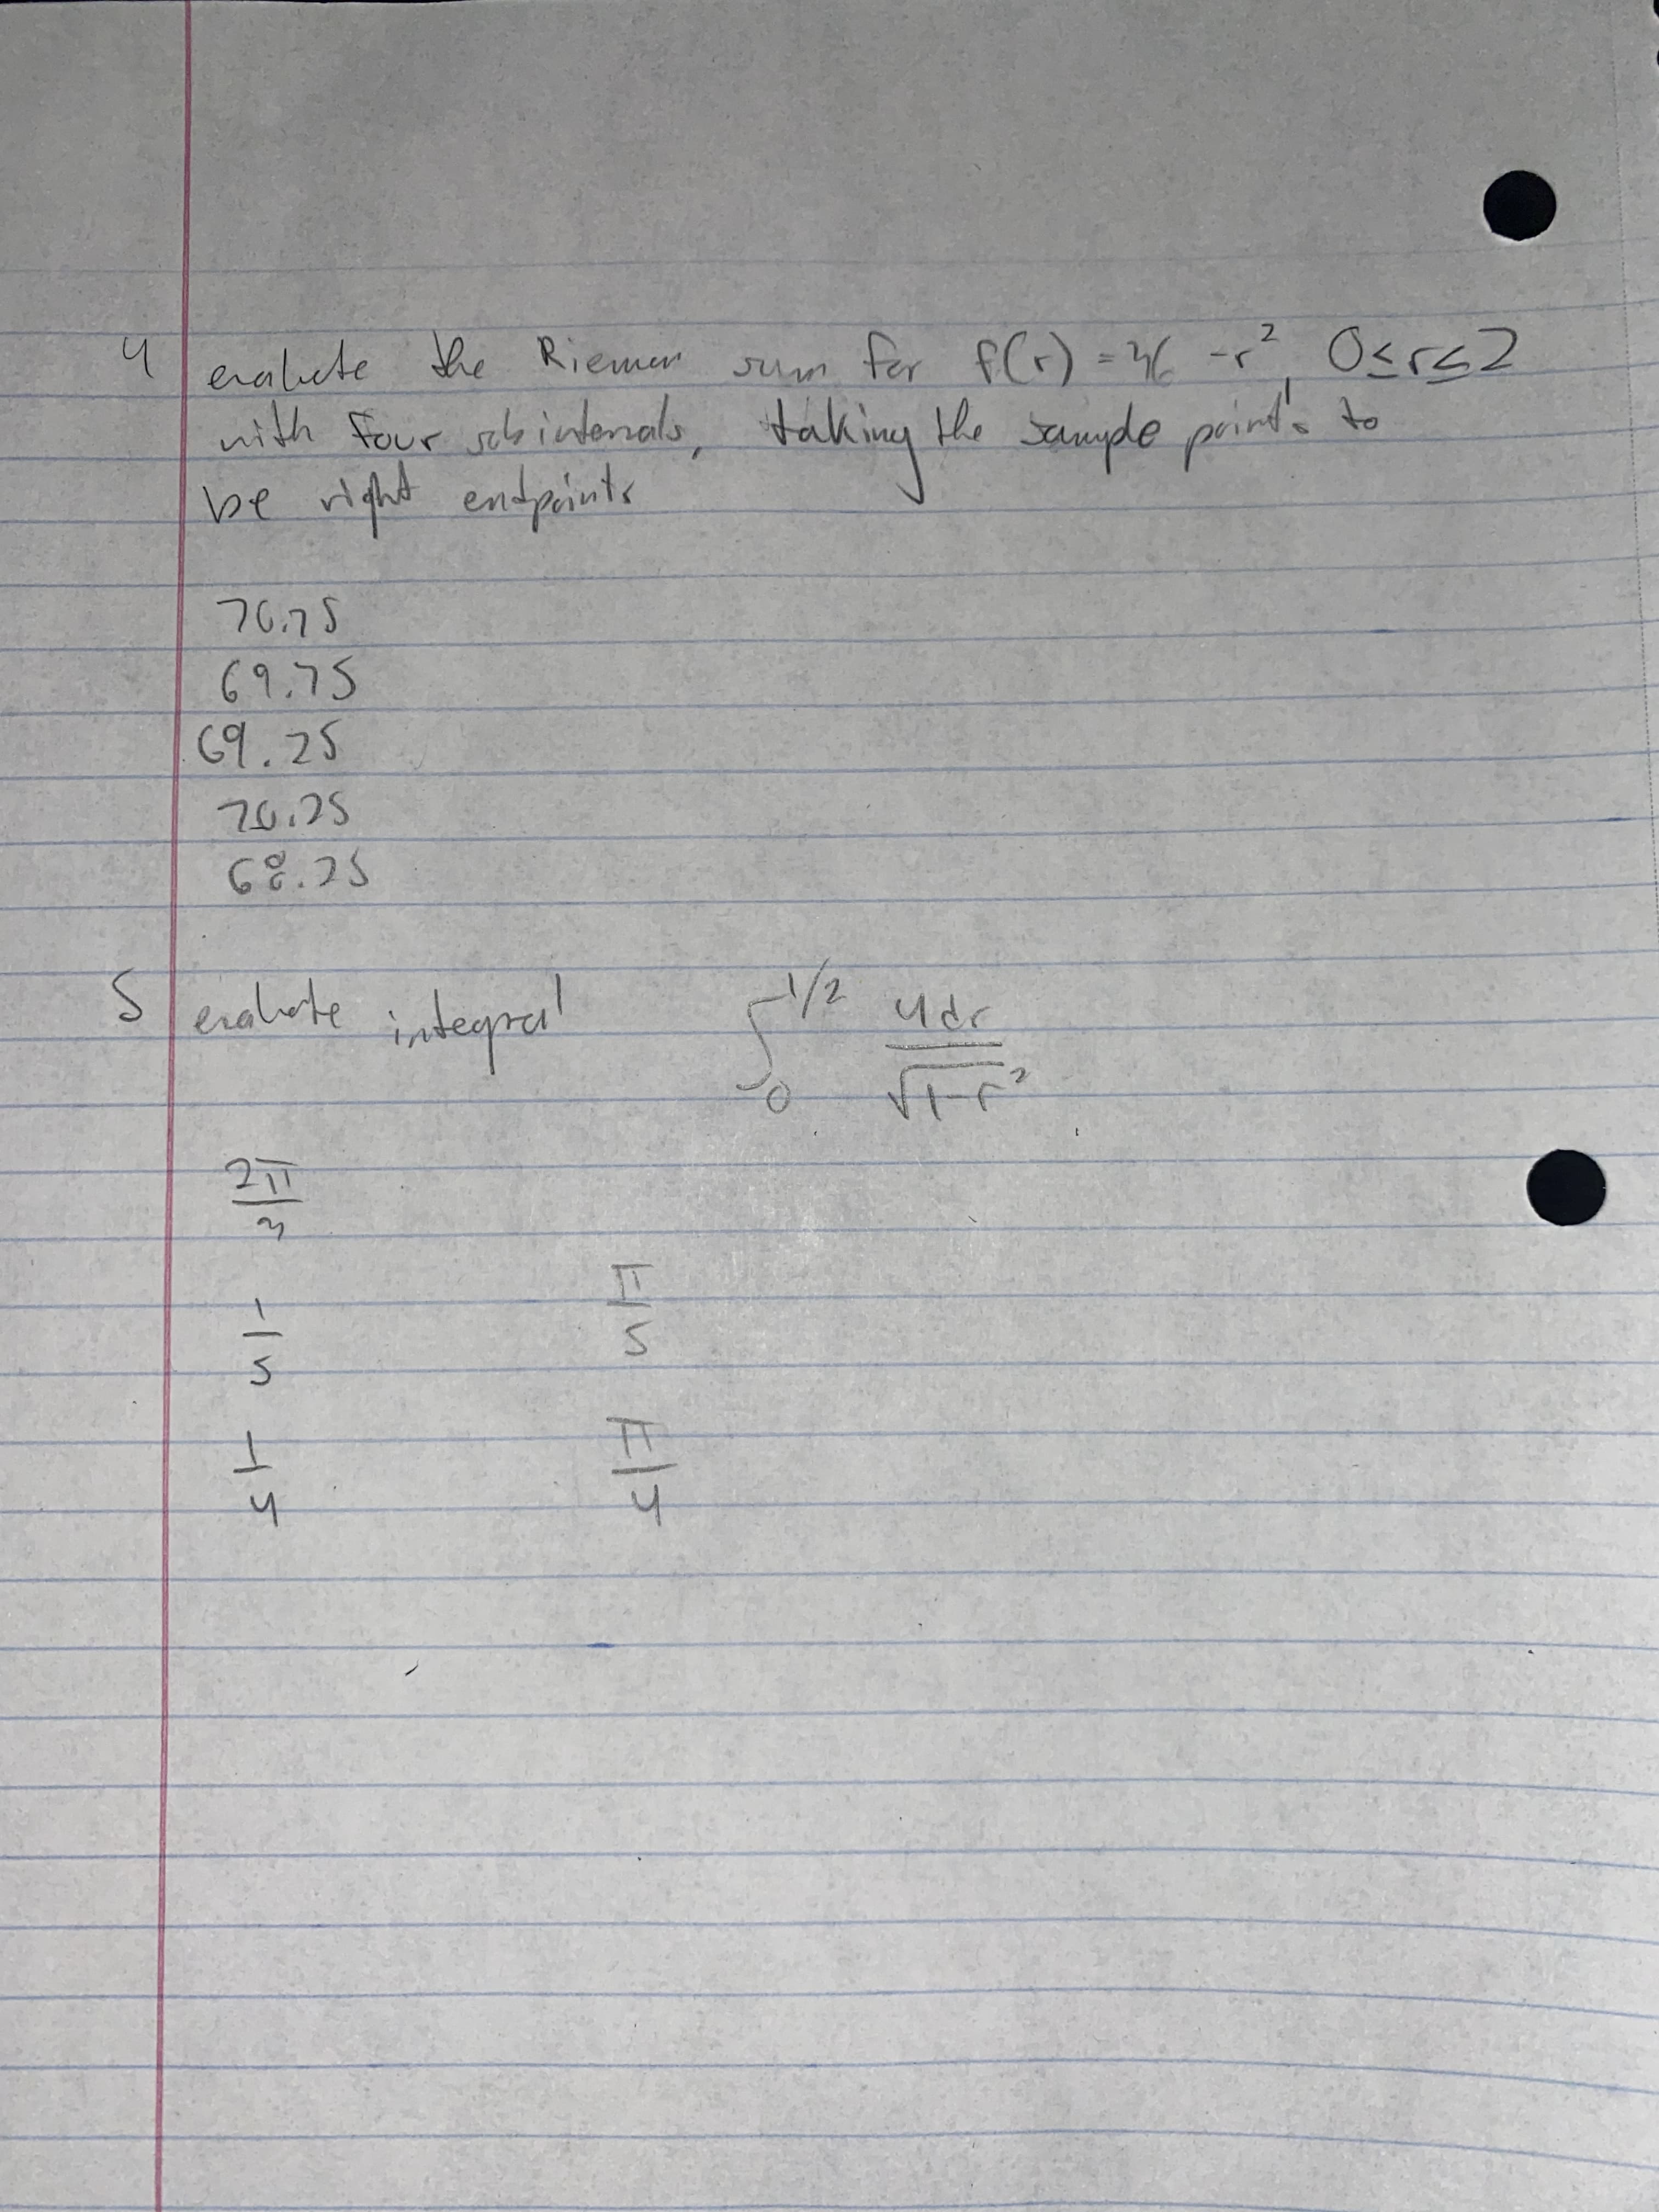 4 evaluate the Rieman sum for f(r) = 36 - r², 0≤r≤2
with four subintervals, taking the sample points to
be right endpoints
70.75
69.75
69.25
70.25
68.25
5 evaluate integral ∫₀^1/2 4dr/√1-r²
2π/3
1/5 π/5
1/4 π/4